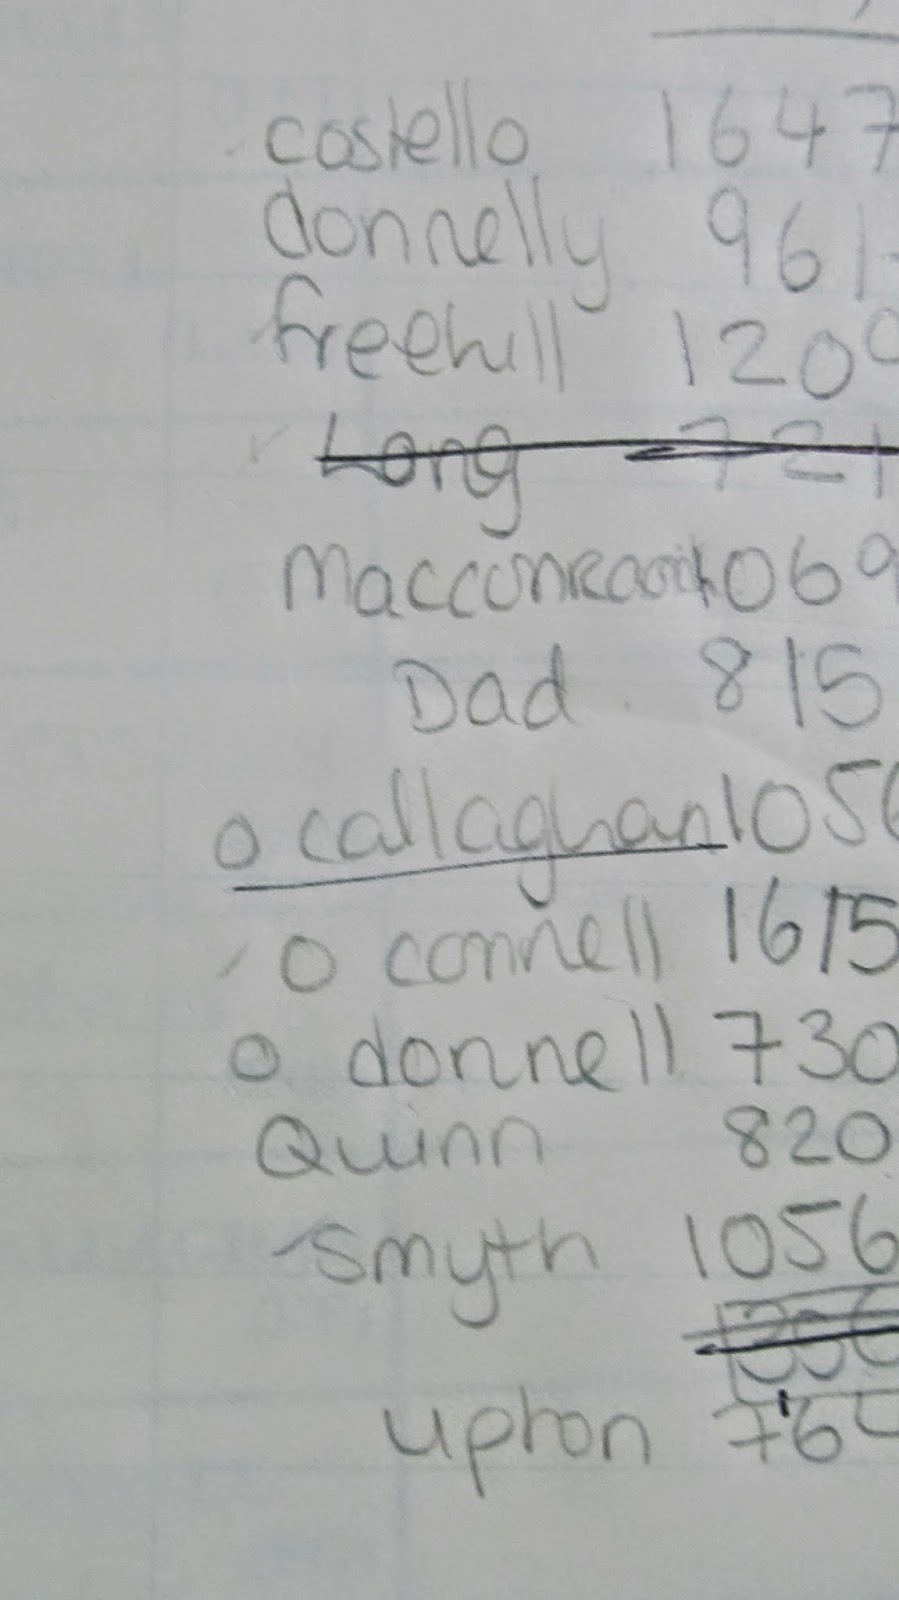 costello 1647
donnelly 961
freehill 120
Long 721
069
Dad 815
o callaghan 105
o connell 1615
o donnell 730
Quinn 820
smyth 1056
upton 76